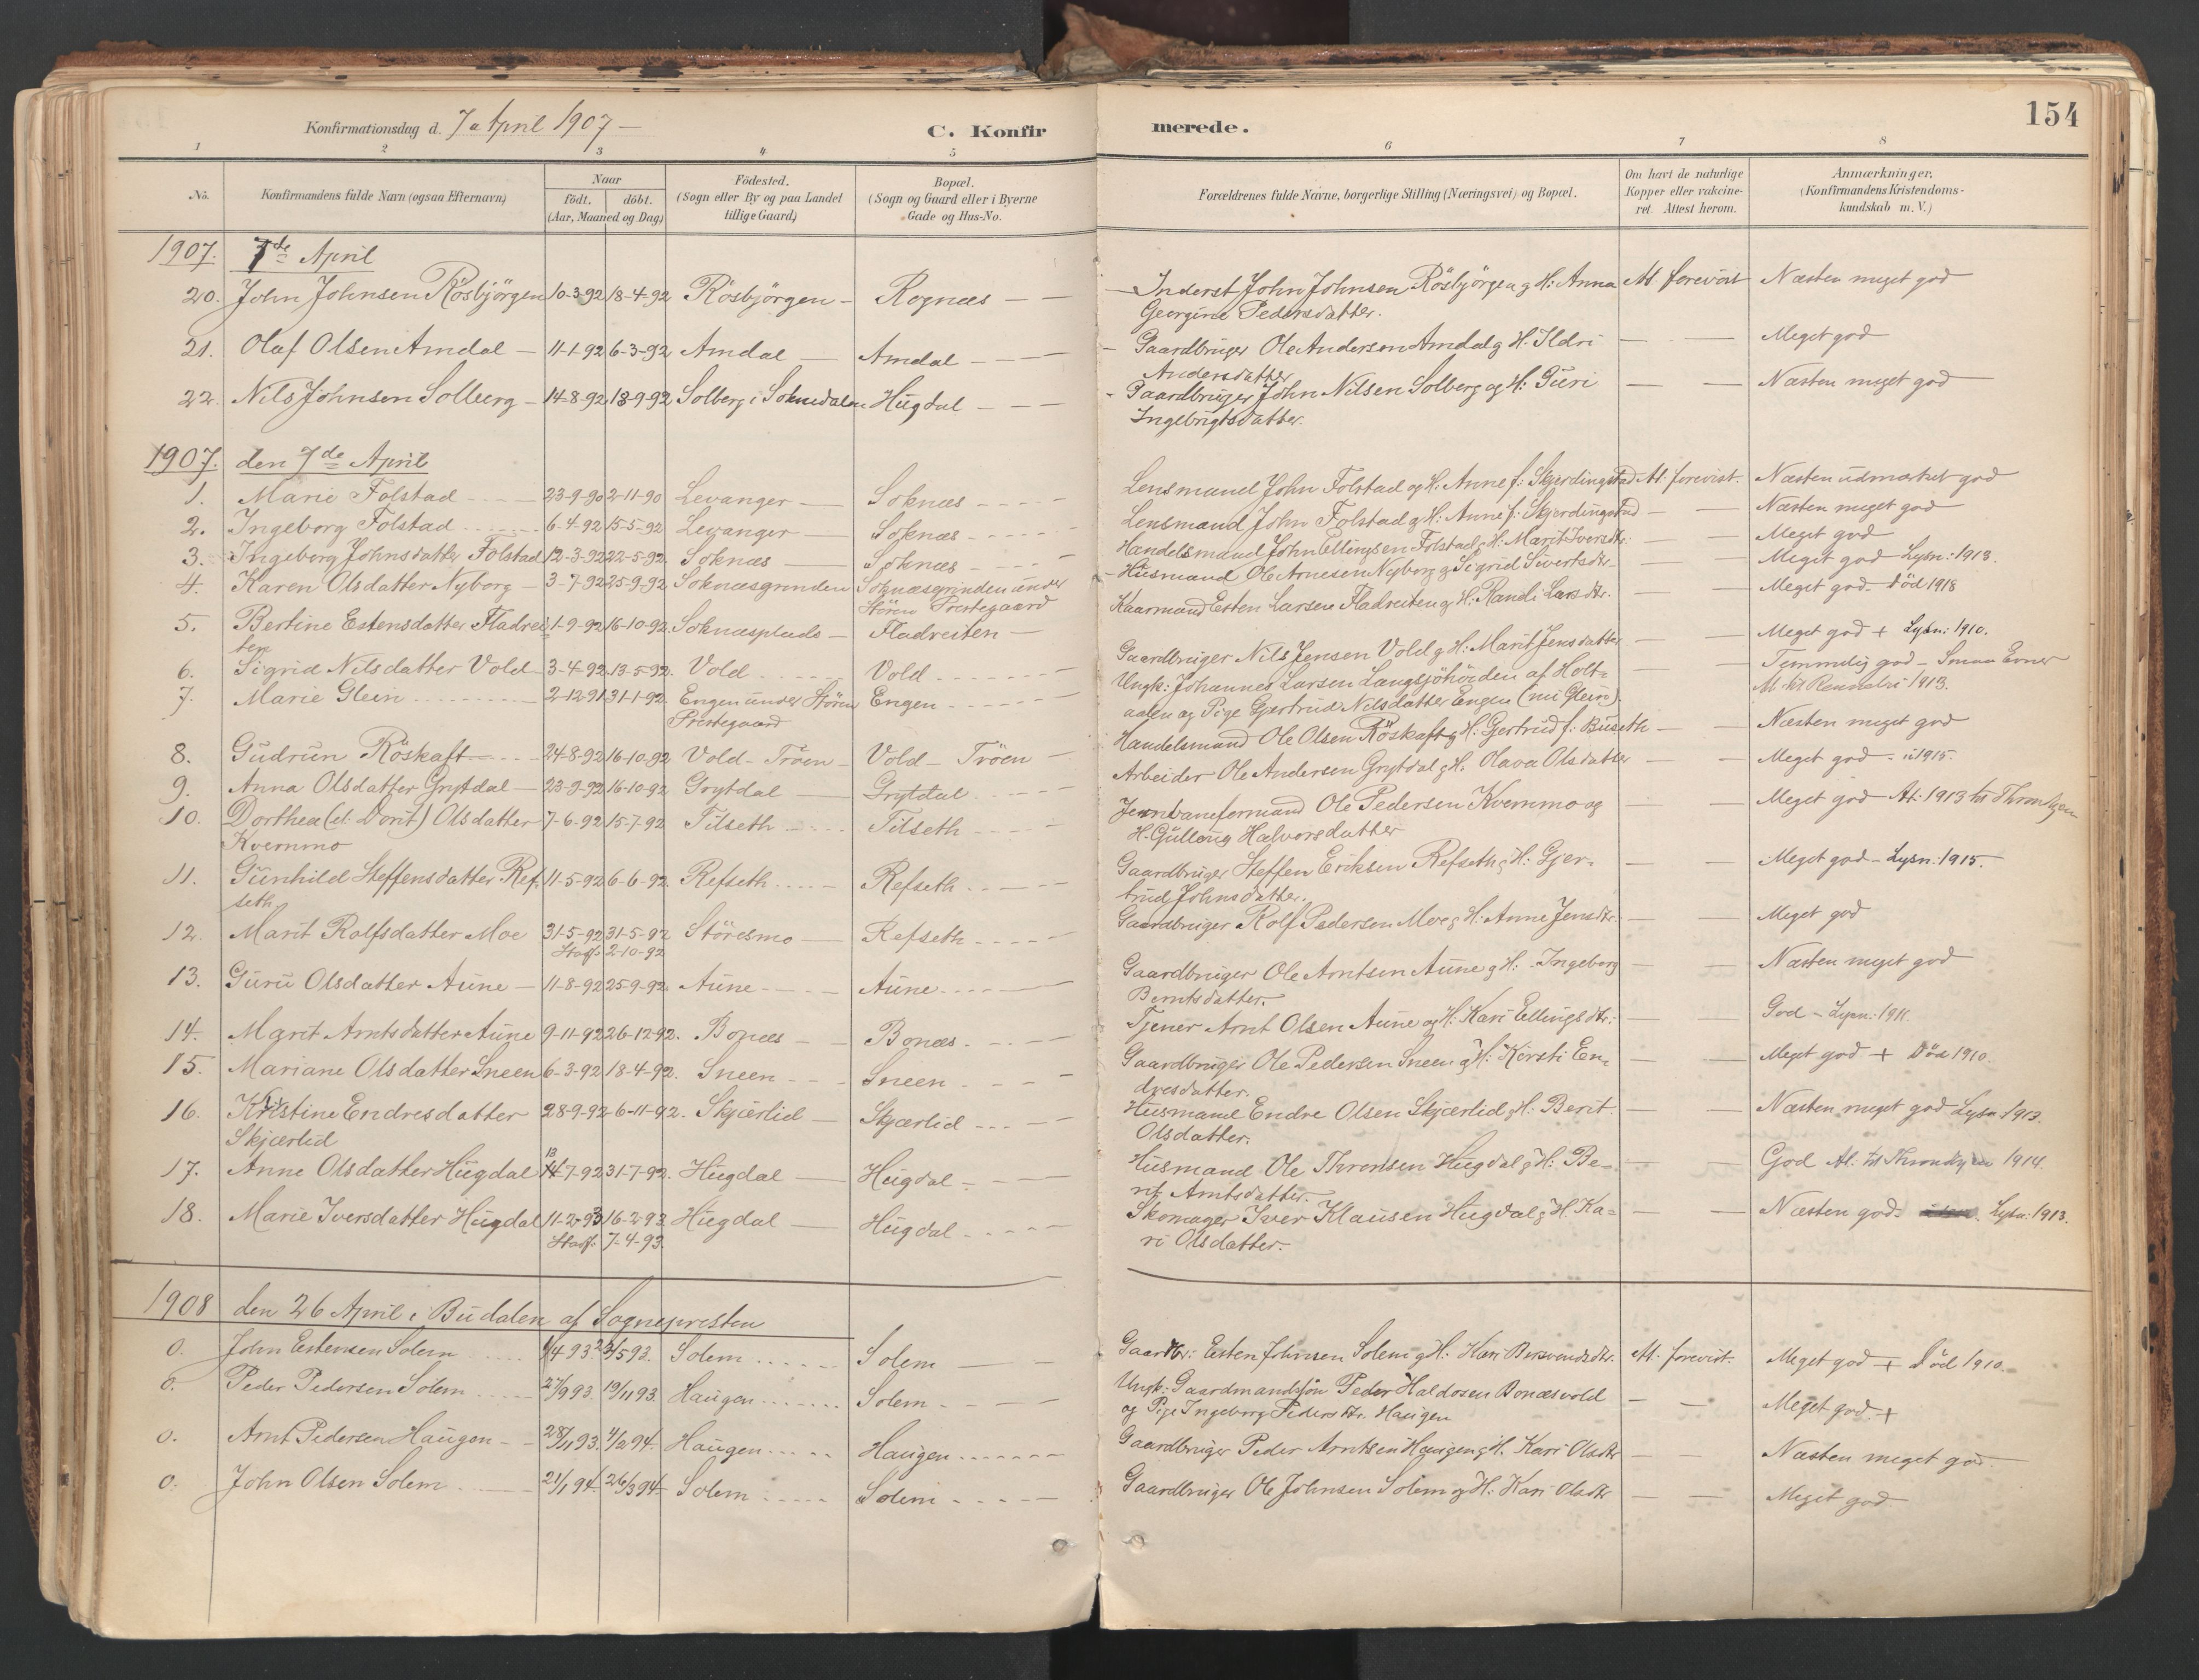 Konfirmationsdag d. 7 April 1907 —
C. Konfirmerede.
154
1 2 3 4 5 6 7 8
No.
Konfirmandens fulde Navn (ogsaa Efternavn)
Naar
födt. döbt.
(Aar, Maaned og Dag)
Födested.
(Sogn eller By og paa Landet
tillige Gaard)
Bopæl.
(Sogn og Gaard eller i Byerne
Gade og Hus-No.
Forældrenes fulde Navne, borgerlige Stilling (Næringsvei) og Bopæl.
Om havt de naturlige
Kopper eller vakcine-
ret. Attest herom.
Anmærkninger.
(Konfirmandens Kristendoms-
kundskab m. V.)
1907. 7de April
20. John Johnsen Rösbjörgen 10-3-92 18-4-92 Rösbjörgen — Rognæs — — Inderst John Johnsen Rösbjörgen og H: Anna At. forevist Næsten meget god
Georgine Pedersdatter.
21. Olaf Olsen Amdal — 11-1-92 6-3-92 Amdal — Amdal — — Gaardbruger Ole Andersen Amdal og H. Ildri — — Meget god
Andersdatter
22. Nils Johnsen Solberg — 14-8-92 18-9-92 Solberg i Soknedalen Hugdal — — Gaardbruger John Nilsen Solberg og H: Guri — — Næsten meget god
Ingebrigtsdatter.
1907. den 7de April
1. Marie Folstad — 23-9-90 2-11-90 Levanger — Soknæs — Lensmand John Folstad og H: Anne f: Skjerdingstad At. forevist. Næsten udmærket god
2. Ingeborg Folstad — 6-4-92 15-5-92 Levanger — Soknæs — Lensmand John Folstad og H: Anne f: Skjerdingstad — — Næsten meget god
3. Ingeborg Johnsdatter Folstad 12-3-92 22-5-92 Soknæs — Soknæs — Handelsmand John Ellingsen Folstad og H: Marit Iversdtr: — Meget god
4. Karen Olsdatter Nyborg — 3-7-92 25-9-92 Soknæsgrinden Soknæsgrinden under Husmand Ole Arnesen Nyborg og Sigrid Sivertsdtr — — Meget god Lysn: 1918.
Stören Prestegaard
5. Berline Estensdatter Fladrei 1-9-92 16-10-92 Soknæsplads — Fladreiten — Kaarmand Esten Larsen Fladreiten og H: Randi Larsdtr. — — Meget god — Död 1918
ten
6. Sigrid Nilsdatter Vold 3-4-92 13-5-92. Vold Vold Gaardbruger Nils Jensen Vold og H: Marit Jensdatter — — Meget god + Lysn: 1910.
7. Marie Glein 2-12-91 31-1-92 Engen under Stören Engen Ungk: Johannes Larsen Langsjöhöiden af Holt- — — Temmelig god —
Prestegaard aalen og Pige Gjertrud Nilsdatter Engen (nu Glein). 1913.
8. Gudrun Röskaft 24-8-92 16-10-92 Vold - Tröen — Vold — Tröen — Handelsmand Ole Olsen Röskaft og H: Gjertrud f: Buseth — — Næsten meget god
9. Anna Olsdatter Grytdal — 23-9-92 16-10-92 Grytdal — Grytdal Arbeider Ole Andersen Grytdal og H. Olava Olsdatter — — Meget god 1915.
10. Dorthea (el: Dorit) Olsdatter 7-6-92 15-7-92 Tilseth Tilseth Jernbaneformand Ole Pedersen Kvernmo og — — Meget god At: 1913 til Throndhjem
Kvernmo H. Gullaug Halvorsdatter
11. Gunhild Steffensdatter Ref- 11-5-92 6-6-92 Refseth Refseth Gaardbruger Steffen Eriksen Refseth og H: Gjer- — — Meget god — Lysn: 1915.
seth trud Johnsdatter.
12. Marit Rolfsdatter Moe 31-5-92 31-5-92 Störesmo — Refseth Gaardbruger Rolf Pedersen Moe og H: Anne Jensdtr: — — Meget god
Stadf. 2-10-92
13. Guru Olsdatter Aune — 11-8-92 25-9-92 Aune Aune Gaardbruger Ole Arntsen Aune og H: Ingeborg — — Næsten meget god
Berntsdatter.
14. Marit Arntsdatter Aune 9-11-92 26-12-92. Bonæs — Bonæs. Tjener Arnt Olsen Aune og H: Kari Ellingsdtr: — — God — Lysn: 1911.
15. Mariane Olsdatter Sneen 6-3-92 18-4-92. Sneen — Sneen Gaardbruger Ole Pedersen Sneen og H: Kirsti En- — — Meget god + Död 1910.
dresdatter.
16. Kristine Endresdatter 28-9-92 6-11-92. Skjærlid — Skjærlid Husmand Endre Olsen Skjærlid og H: Berit — — Næsten meget god Lysn 1913.
Skjærlid Olsdatter.
17. Anne Olsdatter Hugdal 13 14-7-92 31-7-92. Hugdal — Hugdal Husmand Ole Thronsen Hugdal og H: Be- — — God At: til Throndhjem 1914.
rit Arntsdatter.
18. Marie Iversdatter Hugdal 11-2-93 16-2-93 Hugdal — Hugdal Skomager Iver Klausen Hugdal og H: Ka- — — Næsten god. Lysn: 1913.
Stadf: 7-4-93. ri Olsdatter.
1908 den 26 April i Budalen af Sognepresten
0. John Estensen Solem 1/4 93 23/5 93. Solem Solem Gaardbr: Esten Johnsen Solem og H: Kari Bersvendsdtr. At. forevist. Meget god + Död 1910.
0. Peder Pedersen Solem 27/9 93. 19/11 93. Haugen Solem Ungk: Gaardmandssön Peder Haldosen Bonæsvold — — Meget god +
og Pige Ingeborg Pedersdtr. Haugen
0. Arnt Pedersen Haugen 28/11 93. 4/2 94. Haugen Haugen Gaardbruger Peder Arntsen Haugen og H. Kari Olsdtr — — Næsten meget god
0. John Olsen Solem 21/1 94. 26/3 94. Solem Solem Gaardbruger Ole Johnsen Solem og H: Kari Olsdtr — — Meget god